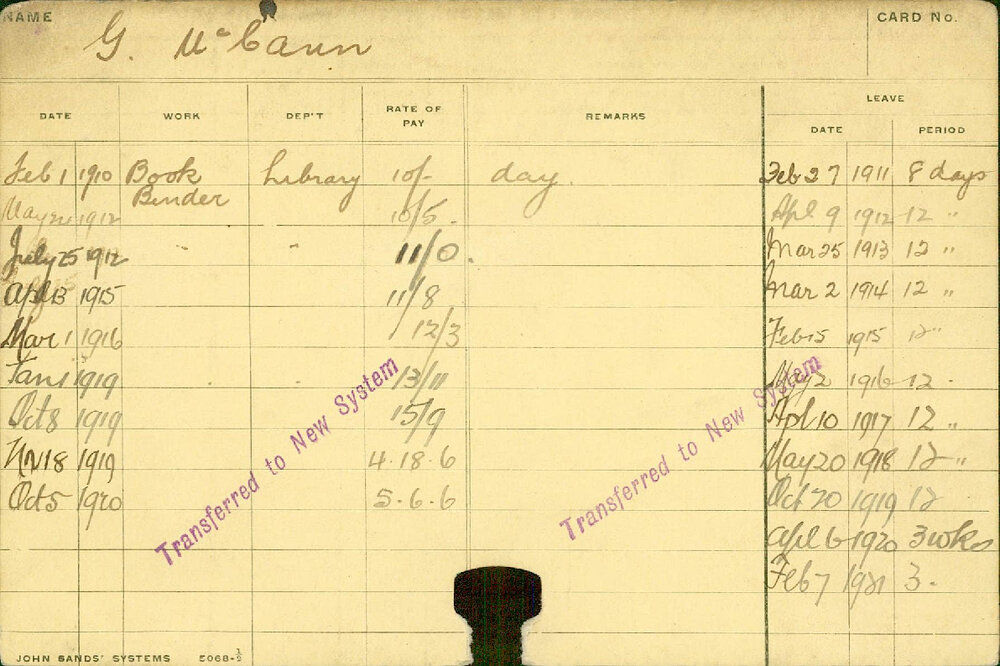 NAME G. McCann CARD No.
DATE WORK DEP'T RATE OF PAY REMARKS LEAVE
DATE PERIOD
Feb 1 1910 Book Binder Library 10/- day. Feb 27 1911 8 days
May 1912 10/5. Apl 9 1912 12 "
July 25 1912 " 11/0. Mar 25 1913 12 "
Apl 13 1915 11/8 Mar 2 1914 12 "
Mar 1 1916 12/3 Feb 15 1915 12 "
Jan 1 1919 13/11 May 2 1916 12 .
Oct 8 1919 15/9 Apl 10 1917 12 "
Nv 18 1919 4.18.6 May 20 1918 12 "
Oct 5 1920 5.6.6 Oct 20 1919 12
Apl 6 1920 3 wks
Feb 7 1921 3.
Transferred to New System
Transferred to New System
JOHN SANDS' SYSTEMS 5068-½